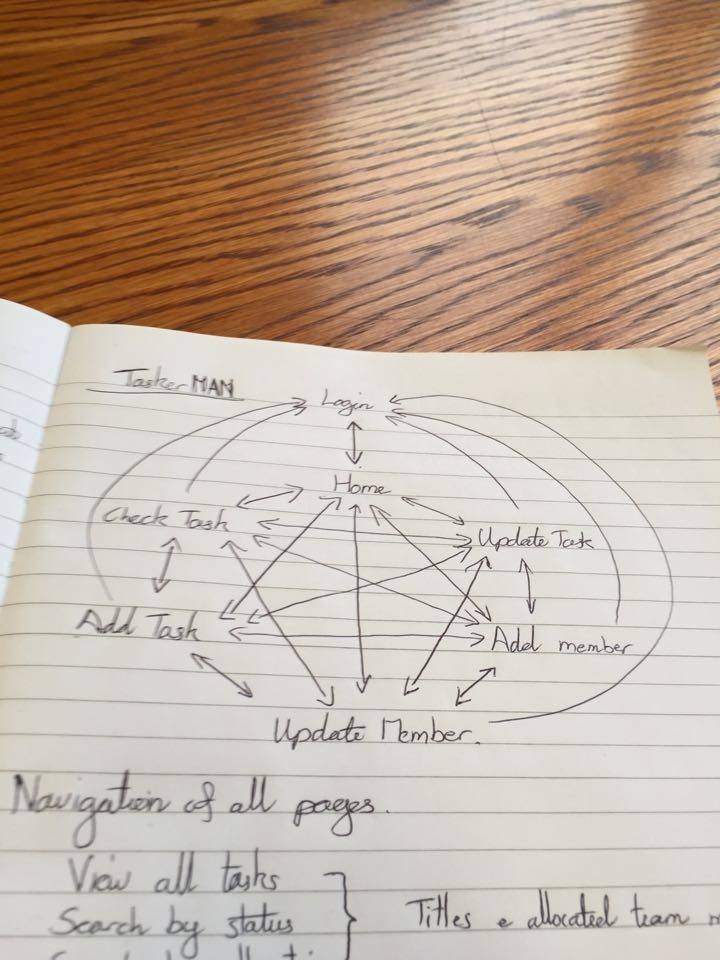 Tasker MAN
Login
Home
Check Task
Update Task
Add Task
Add member
Update Member.
Navigation of all pages.
View all tasks
Search by status
Titles e allocated team